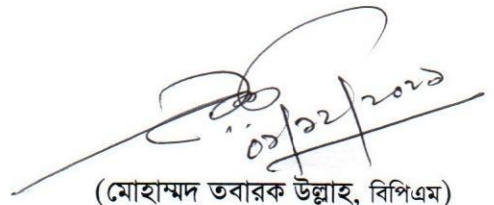 ০১/১২/২০২১
(মোহাম্মদ তবারক উল্লাহ, বিপিএম)